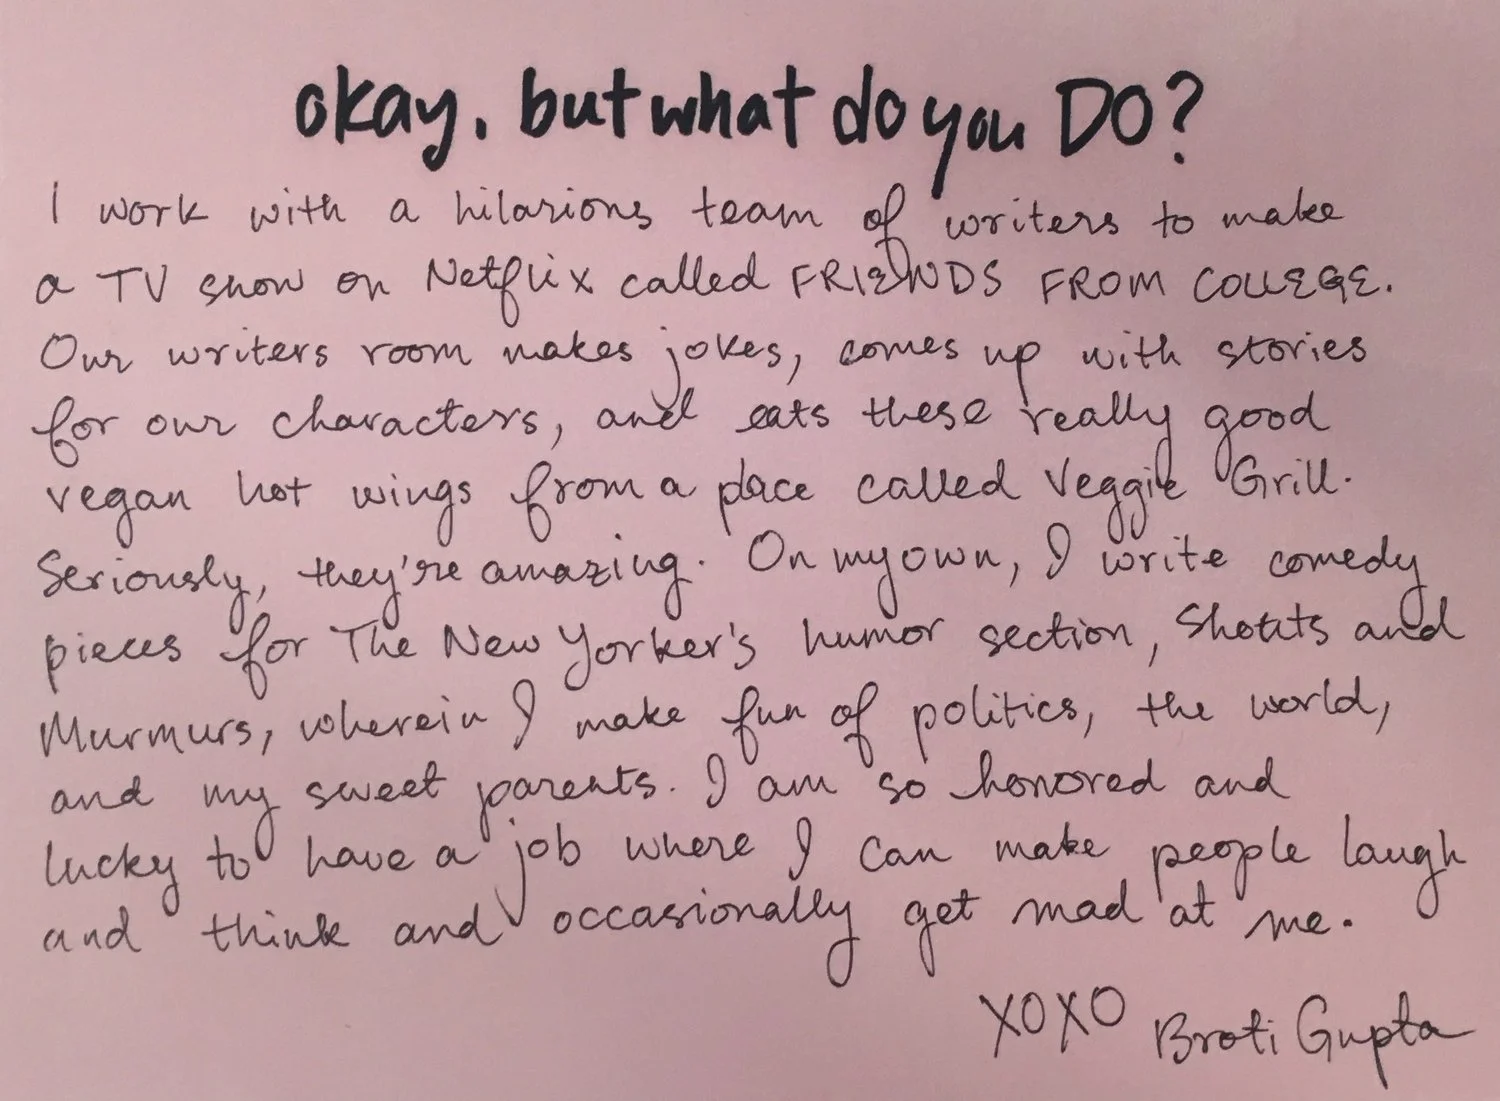 okay, but what do you DO?
I work with a hilarious team of writers to make
a TV show on Netflix called FRIENDS FROM COLLEGE.
Our writers room makes jokes, comes up with stories
for our characters, and eats these really good
vegan hot wings from a place called Veggie Grill.
Seriously, they're amazing. On my own, I write comedy
pieces for The New Yorker's humor section, Shouts and
Murmurs, wherein I make fun of politics, the world,
and my sweet parents. I am so honored and
lucky to have a job where I can make people laugh
and think and occasionally get mad at me.
XOXO Broti Gupta